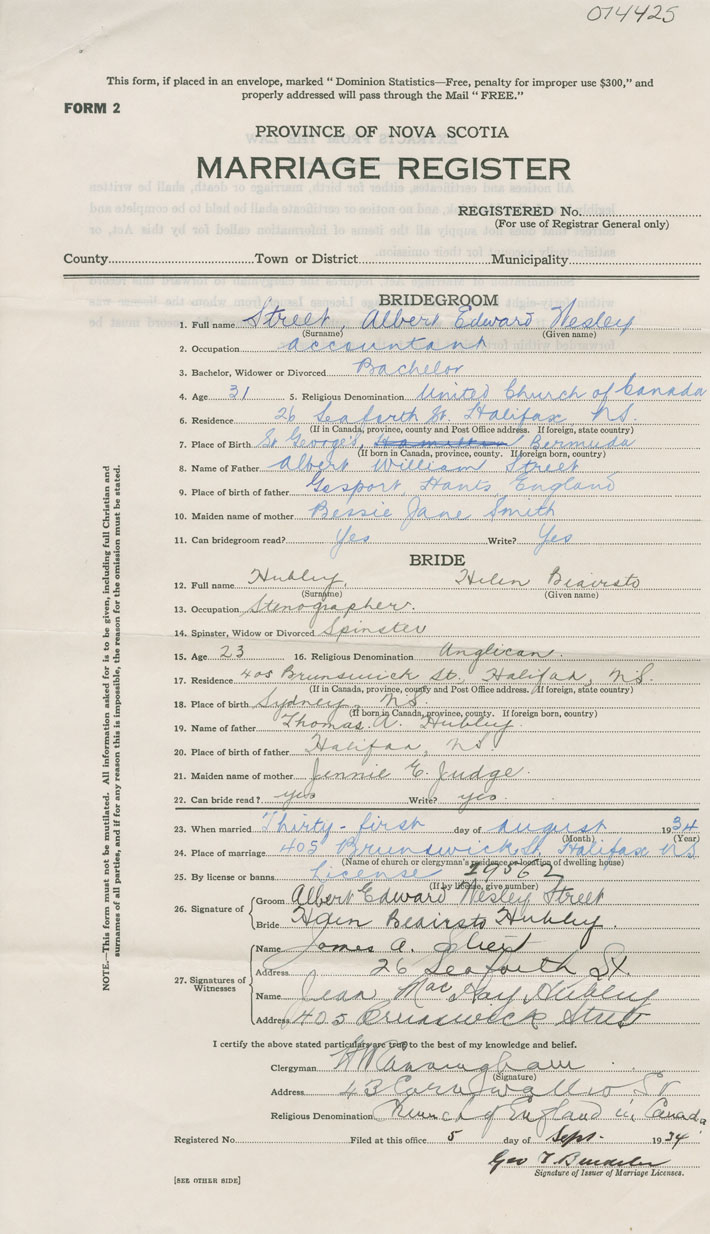 074425
This form, if placed in an envelope, marked " Dominion Statistics—Free, penalty for improper use $300," and
properly addressed will pass through the Mail " FREE."
FORM 2
PROVINCE OF NOVA SCOTIA
MARRIAGE REGISTER
REGISTERED No.
(For use of Registrar General only)
County Town or District Municipality
BRIDEGROOM
1. Full name Street, Albert Edward Wesley
(Surname) (Given name)
2. Occupation accountant
3. Bachelor, Widower or Divorced Bachelor
4. Age 31 5. Religious Denomination United Church of Canada
6. Residence 26 Seaforth St. Halifax N.S.
(If in Canada, province, county and Post Office address. If foreign, state country)
7. Place of Birth St George's, Bermuda
(If born in Canada, province, county. If foreign born, country)
8. Name of Father Albert William Street
9. Place of birth of father Gosport, Hants England
10. Maiden name of mother Bessie Jane Smith
11. Can bridegroom read? Yes Write? Yes
BRIDE
12. Full name Hubley, Helen Beairsto
(Surname) (Given name)
13. Occupation Stenographer.
14. Spinster, Widow or Divorced Spinster
15. Age 23 16. Religious Denomination Anglican.
17. Residence 405 Brunswick St. Halifax, N.S.
(If in Canada, province, county and Post Office address. If foreign, state country)
18. Place of birth Sydney, N.S.
(If born in Canada, province, county. If foreign born, country)
19. Name of father Thomas A. Hubley
20. Place of birth of father Halifax, N.S.
21. Maiden name of mother Jennie E. Judge.
22. Can bride read? yes Write? yes.
23. When married Thirty-first day of August 1934
(Month) (Year)
24. Place of marriage 405 Brunswick St Halifax N.S.
(Name of church or clergyman's residence or location of dwelling house)
25. By license or banns License 29562
(If by license, give number)
26. Signature of
Groom Albert Edward Wesley Street
Bride Helen Beairsto Hubley.
27. Signatures of Witnesses
Name James A. Street
Address 26 Seaforth St.
Name Jean MacKay Hubley
Address 405 Brunswick Street
I certify the above stated particulars are true to the best of my knowledge and belief.
Clergyman
(Signature)
Address 43 Cornwallis St
Religious Denomination Church of England in Canada
Registered No. Filed at this office 5 day of Sept. 1934
Geo
Signature of Issuer of Marriage Licenses.
[SEE OTHER SIDE]
NOTE.—This form must not be mutilated. All information asked for is to be given, including full Christian and
surnames of all parties, and if for any reason this is impossible, the reason for the omission must be stated.